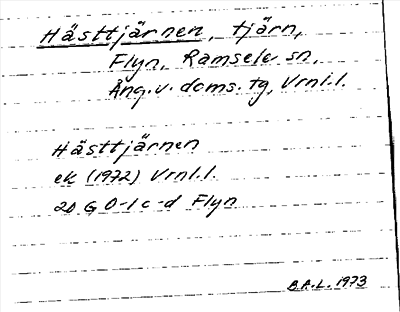 Hästtjärnen, tjärn,
Flyn, Ramsele sn,
Ång.v. doms. tg, Vrnl.l.
Hästtjärnen
ek (1972) Vrnl.l.
20 G 0-1 c-d Flyn
B.A.L. 1973